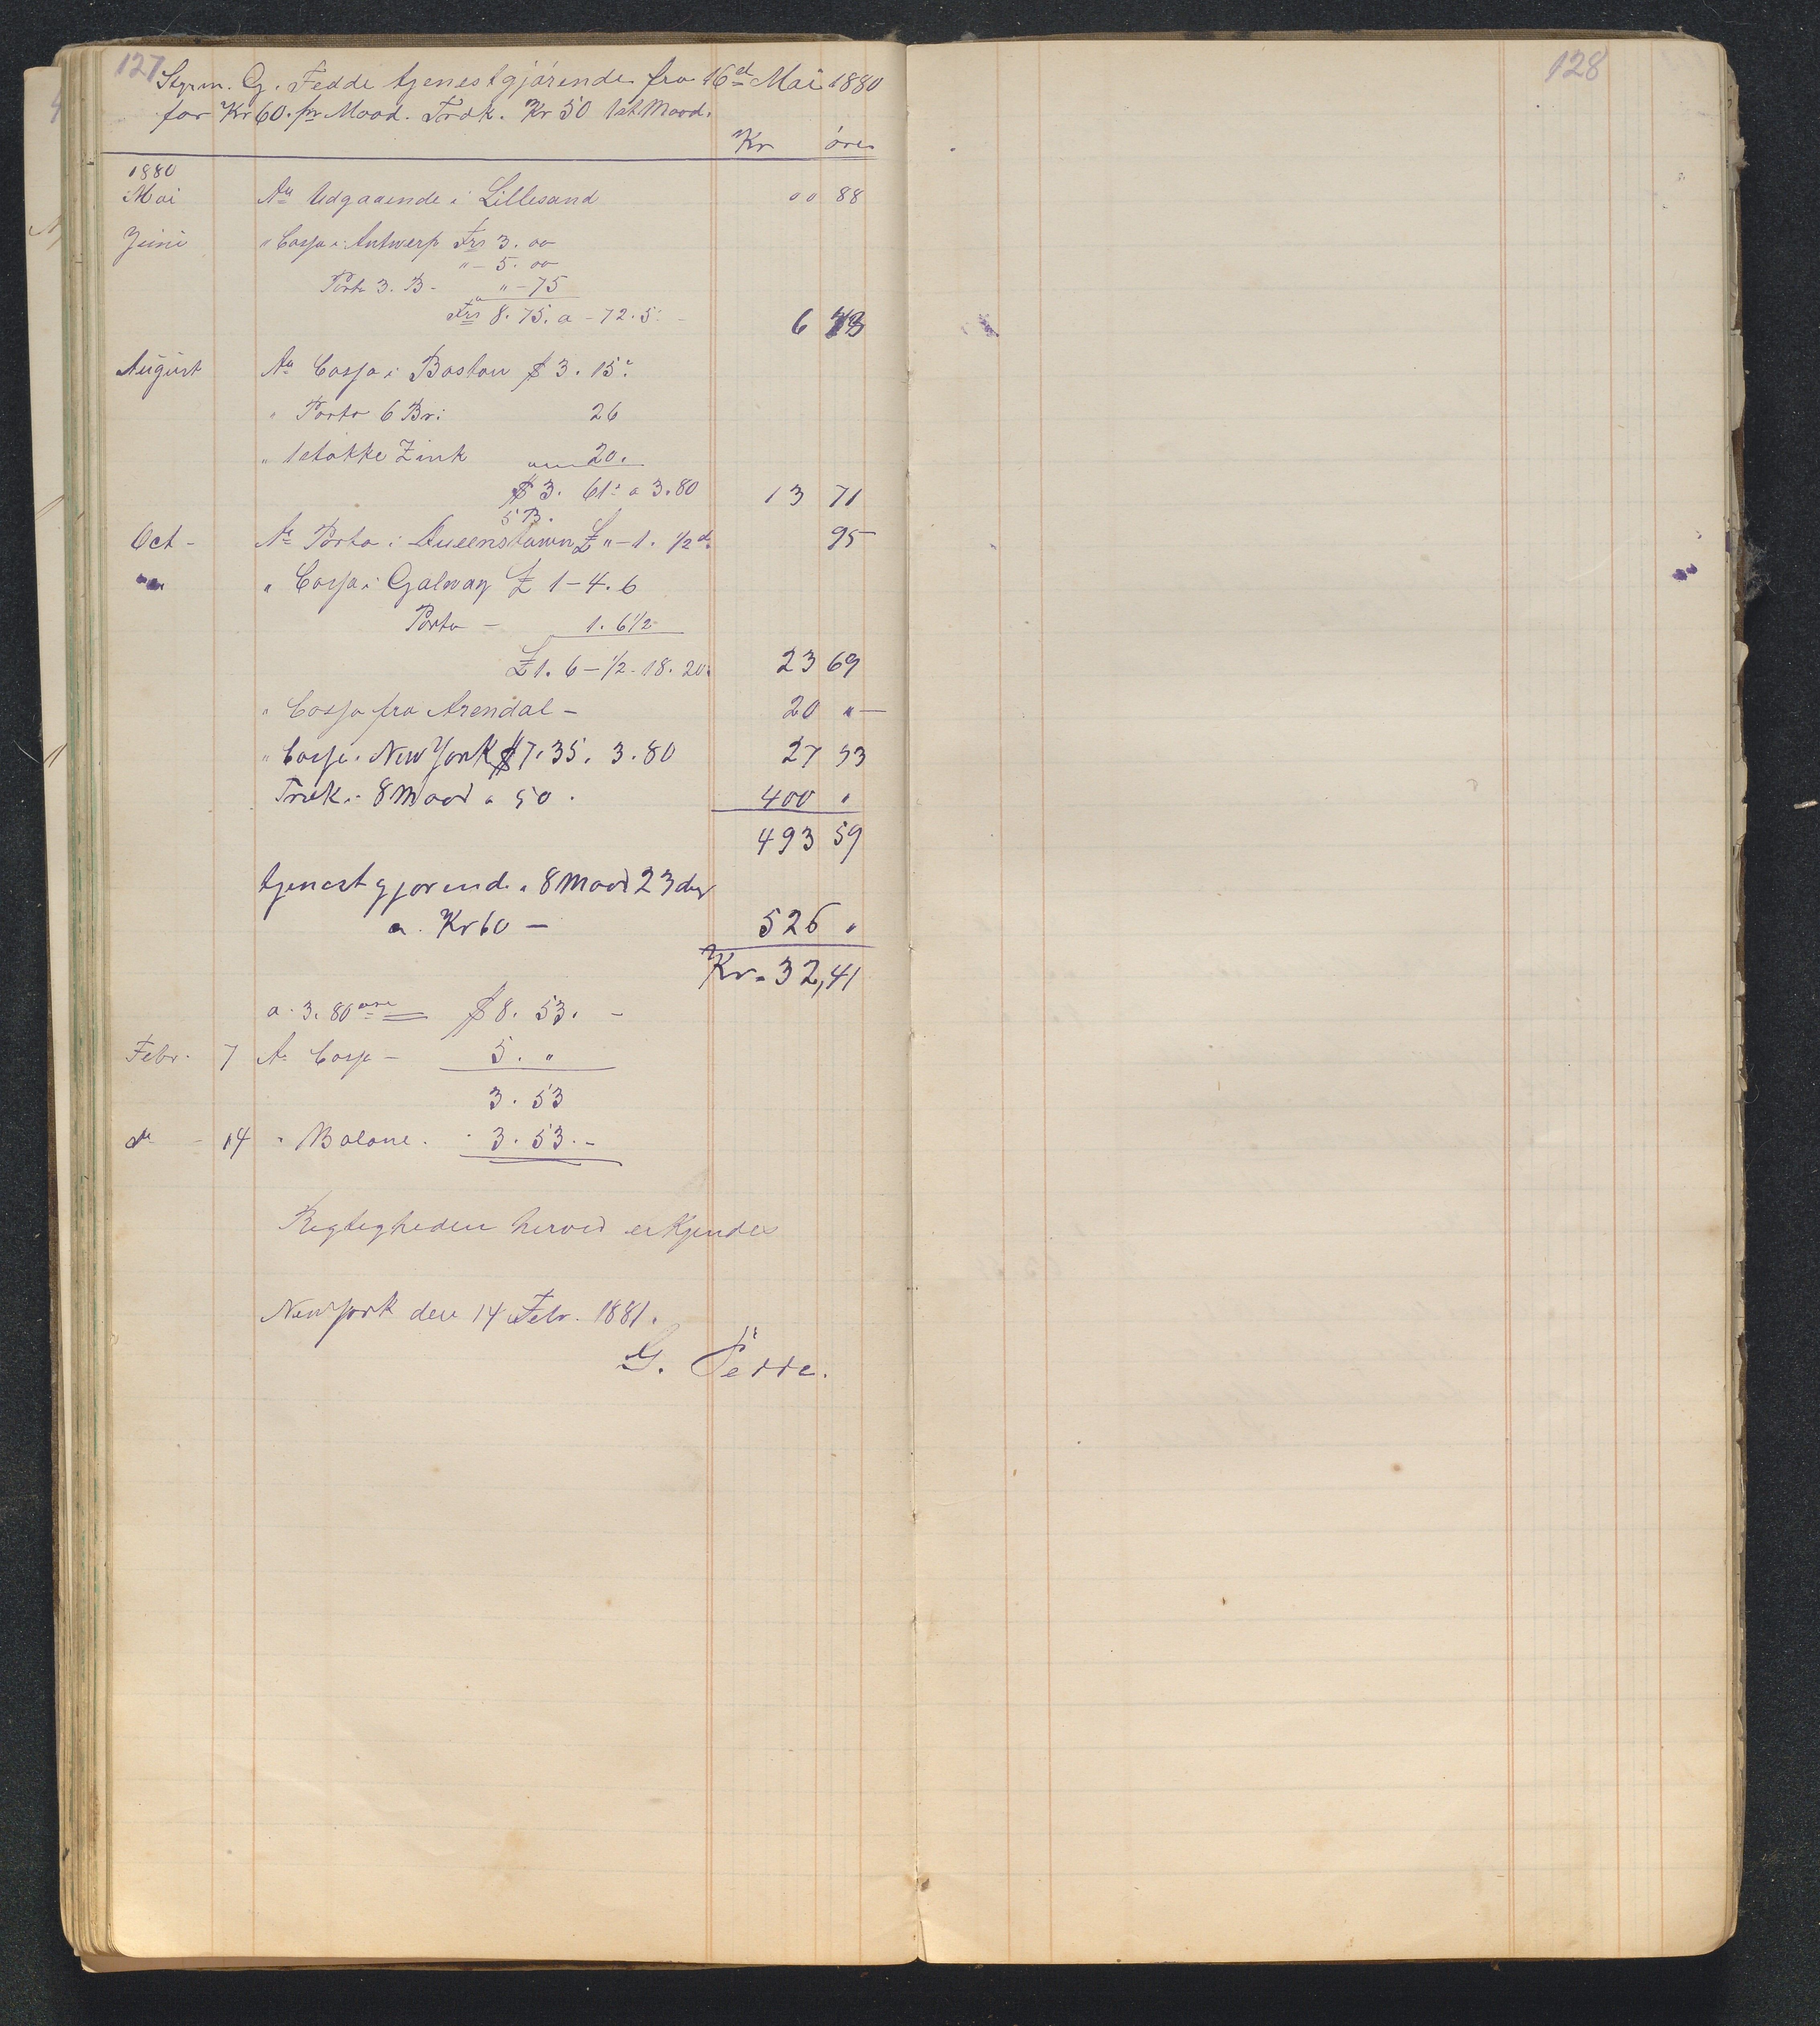 127
Styrm. G. Fedde tjenestgjörende fra 16de Mai 1880
for Kr 60. pr Maad. Træk. Kr 50 1st Maad.
Kr öre
1880
Mai An Udgaaende i Lillesand " " 88
Juni " Cassa i Antwerp Frs 3. 00
" - 5. 00
Porto 3. B - " - 75
Frs 8. 75. a - 72. 5 - 6
August An Cassa i Boston $ 3. 15
" Porto 6 Br: 26
" 1 stökke Zink 20.
$ 3. 61 a 3.80 13 71
5 B.
Oct - An Porto i Queenstown £ " - 1. 1/2 d. 95
" Cassa i Galway £ 1 - 4. 6
Porto - 1. 6 1/2
£ 1. 6 - 1/2 - 18. 20. 23 69
" Cassa fra Arendal - 20 " -
" Cassa i New York $ 7. 35. 3. 80 27 93
Træk i 8 Maad a 50. 400 "
493 59
tjenestgjorende i 8 Maad 23 dag
a. Kr 60 - 526 "
Kr. 32,41
a. 3. 80 öre = $ 8. 53. -
Febr. 7 An Cassa - 5. "
3. 53
do - 14 " Balane. 3. 53. -
Regtigheden herved erkjendes
New York den 14 Febr. 1881.
G. Fedde.
128